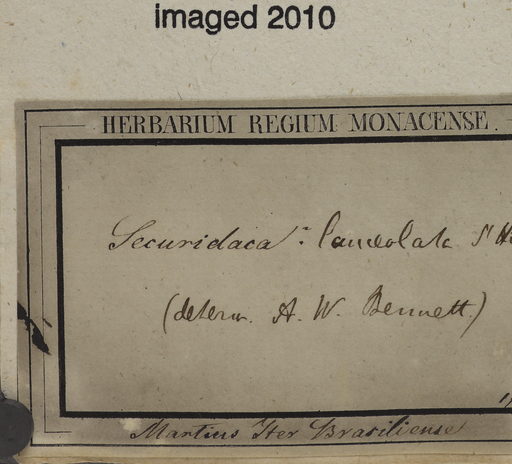 imaged 2010
HERBARIUM REGIUM MONACENSE.
Securidaca lanceolata St H
(determ. A. W. Bennett.)
Martius Iter Brasiliense